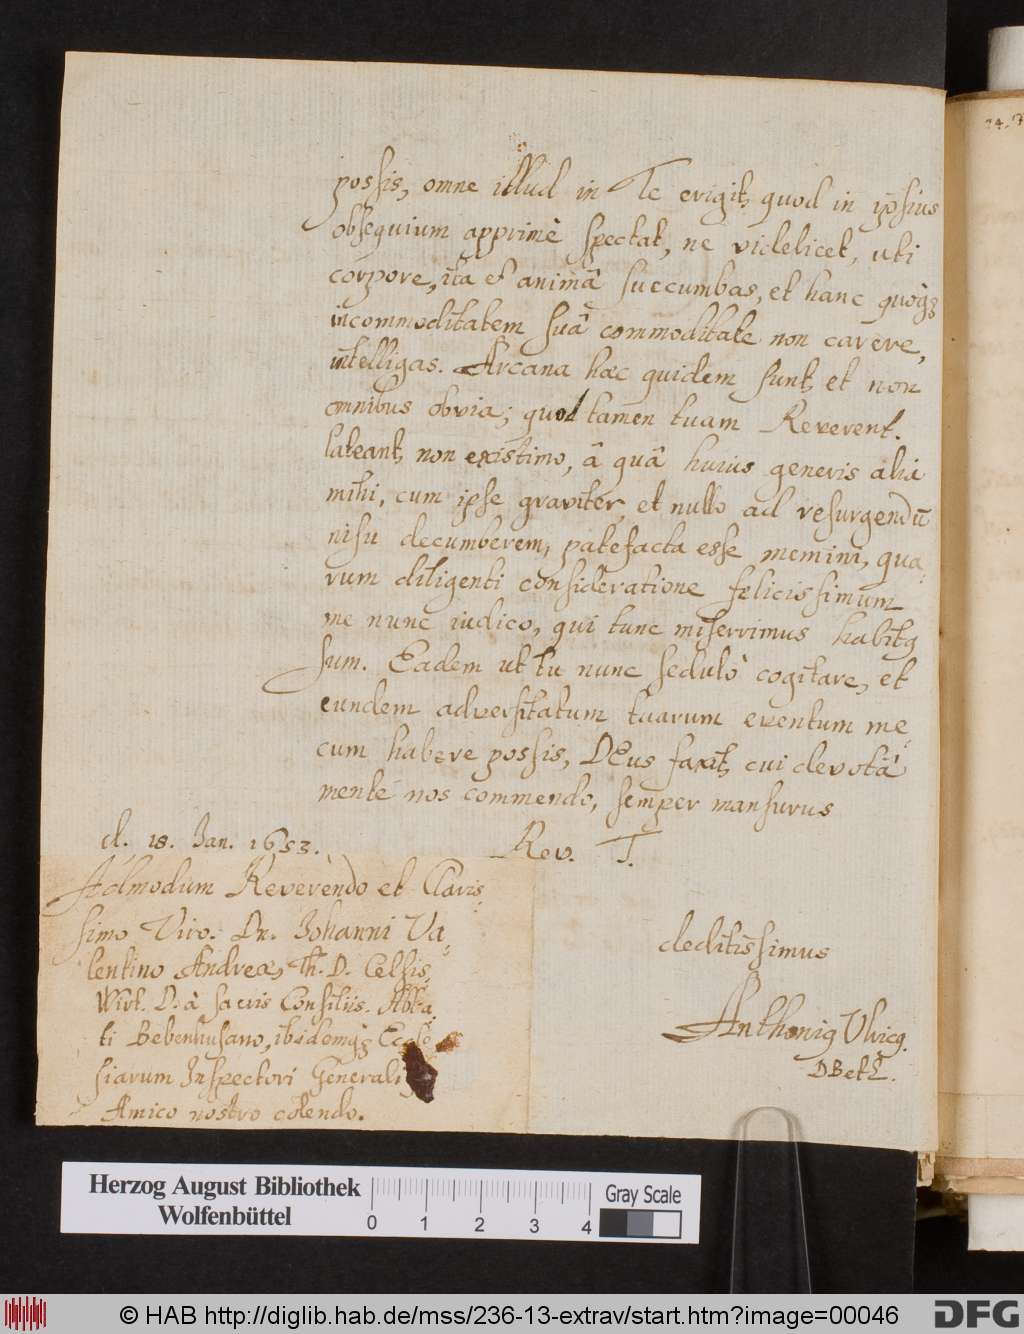 possis, omne illud in Te erigit, quod in ipsius
obsequium apprimè spectat, ne videlicet, uti
corpore, ita et animâ succumbas, et hanc quoqꝫ
incommoditatem suâ commoditate non carere,
intelligas. Arcana haec quidem sunt, et non
omnibus obvia; quod tamen tuam Reverent.
lateant, non existimo, â quâ huius generis alia
mihi, cum ipse graviter, et nullo ad resurgendū
nisu decumberem, patefacta esse memini, qua-
rum diligenti consideratione felicissimum
me nunc iudico, qui tunc miserrimus habitꝯ
sum. Eadem ut tu nunc sedulò cogitare, et
eundem adversitatum tuarum eventum me-
cum habere possis, DEus faxit, cui devotâ
mente nos commendo, semper mansurus
d. 18. Jan. 1653.
Rev. T.
deditissimus
Anthonig Ulricg.
DBetL.
Admodum Reverendo et Claris-
simo Viro. Dn. Johanni Va-
lentino Andreæ, Th. D. Celsis.
Wirt. D. à sacris Consiliis. Abba-
ti Bebenhusano, ibidemqꝫ Eccle-
siarum Inspectori Generali
Amico nostro colendo.
14.
Herzog August Bibliothek
Wolfenbüttel
0 1 2 3 4
Gray Scale
© HAB http://diglib.hab.de/mss/236-13-extrav/start.htm?image=00046
DFG